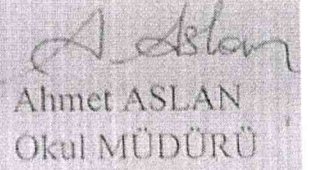 A. Aslan
Ahmet ASLAN
Okul MÜDÜRÜ